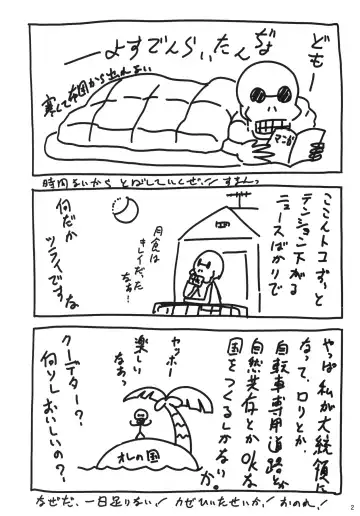 どもー
ぢょ
たんいらんですよーー
寒くて布団から出れない
マンガ
時間ないからとばしていくぜ!!すまんっ
ここんトコずっと
テンション下がる
ニュースばかりで
月食は
キレイだった
なぁ…
何だか
ツライですな
やっぱ私が大統領に
なって、ロリとか、
自転車専用道路とか
自然共存とかOKな
国をつくるしかないか。
ヤッホー
楽しい
なぁっ
オレの国
クーデター?
何ソレおいしいの?
なぜだ、一日足りない!かぜひいたせいか!おのれ!
2